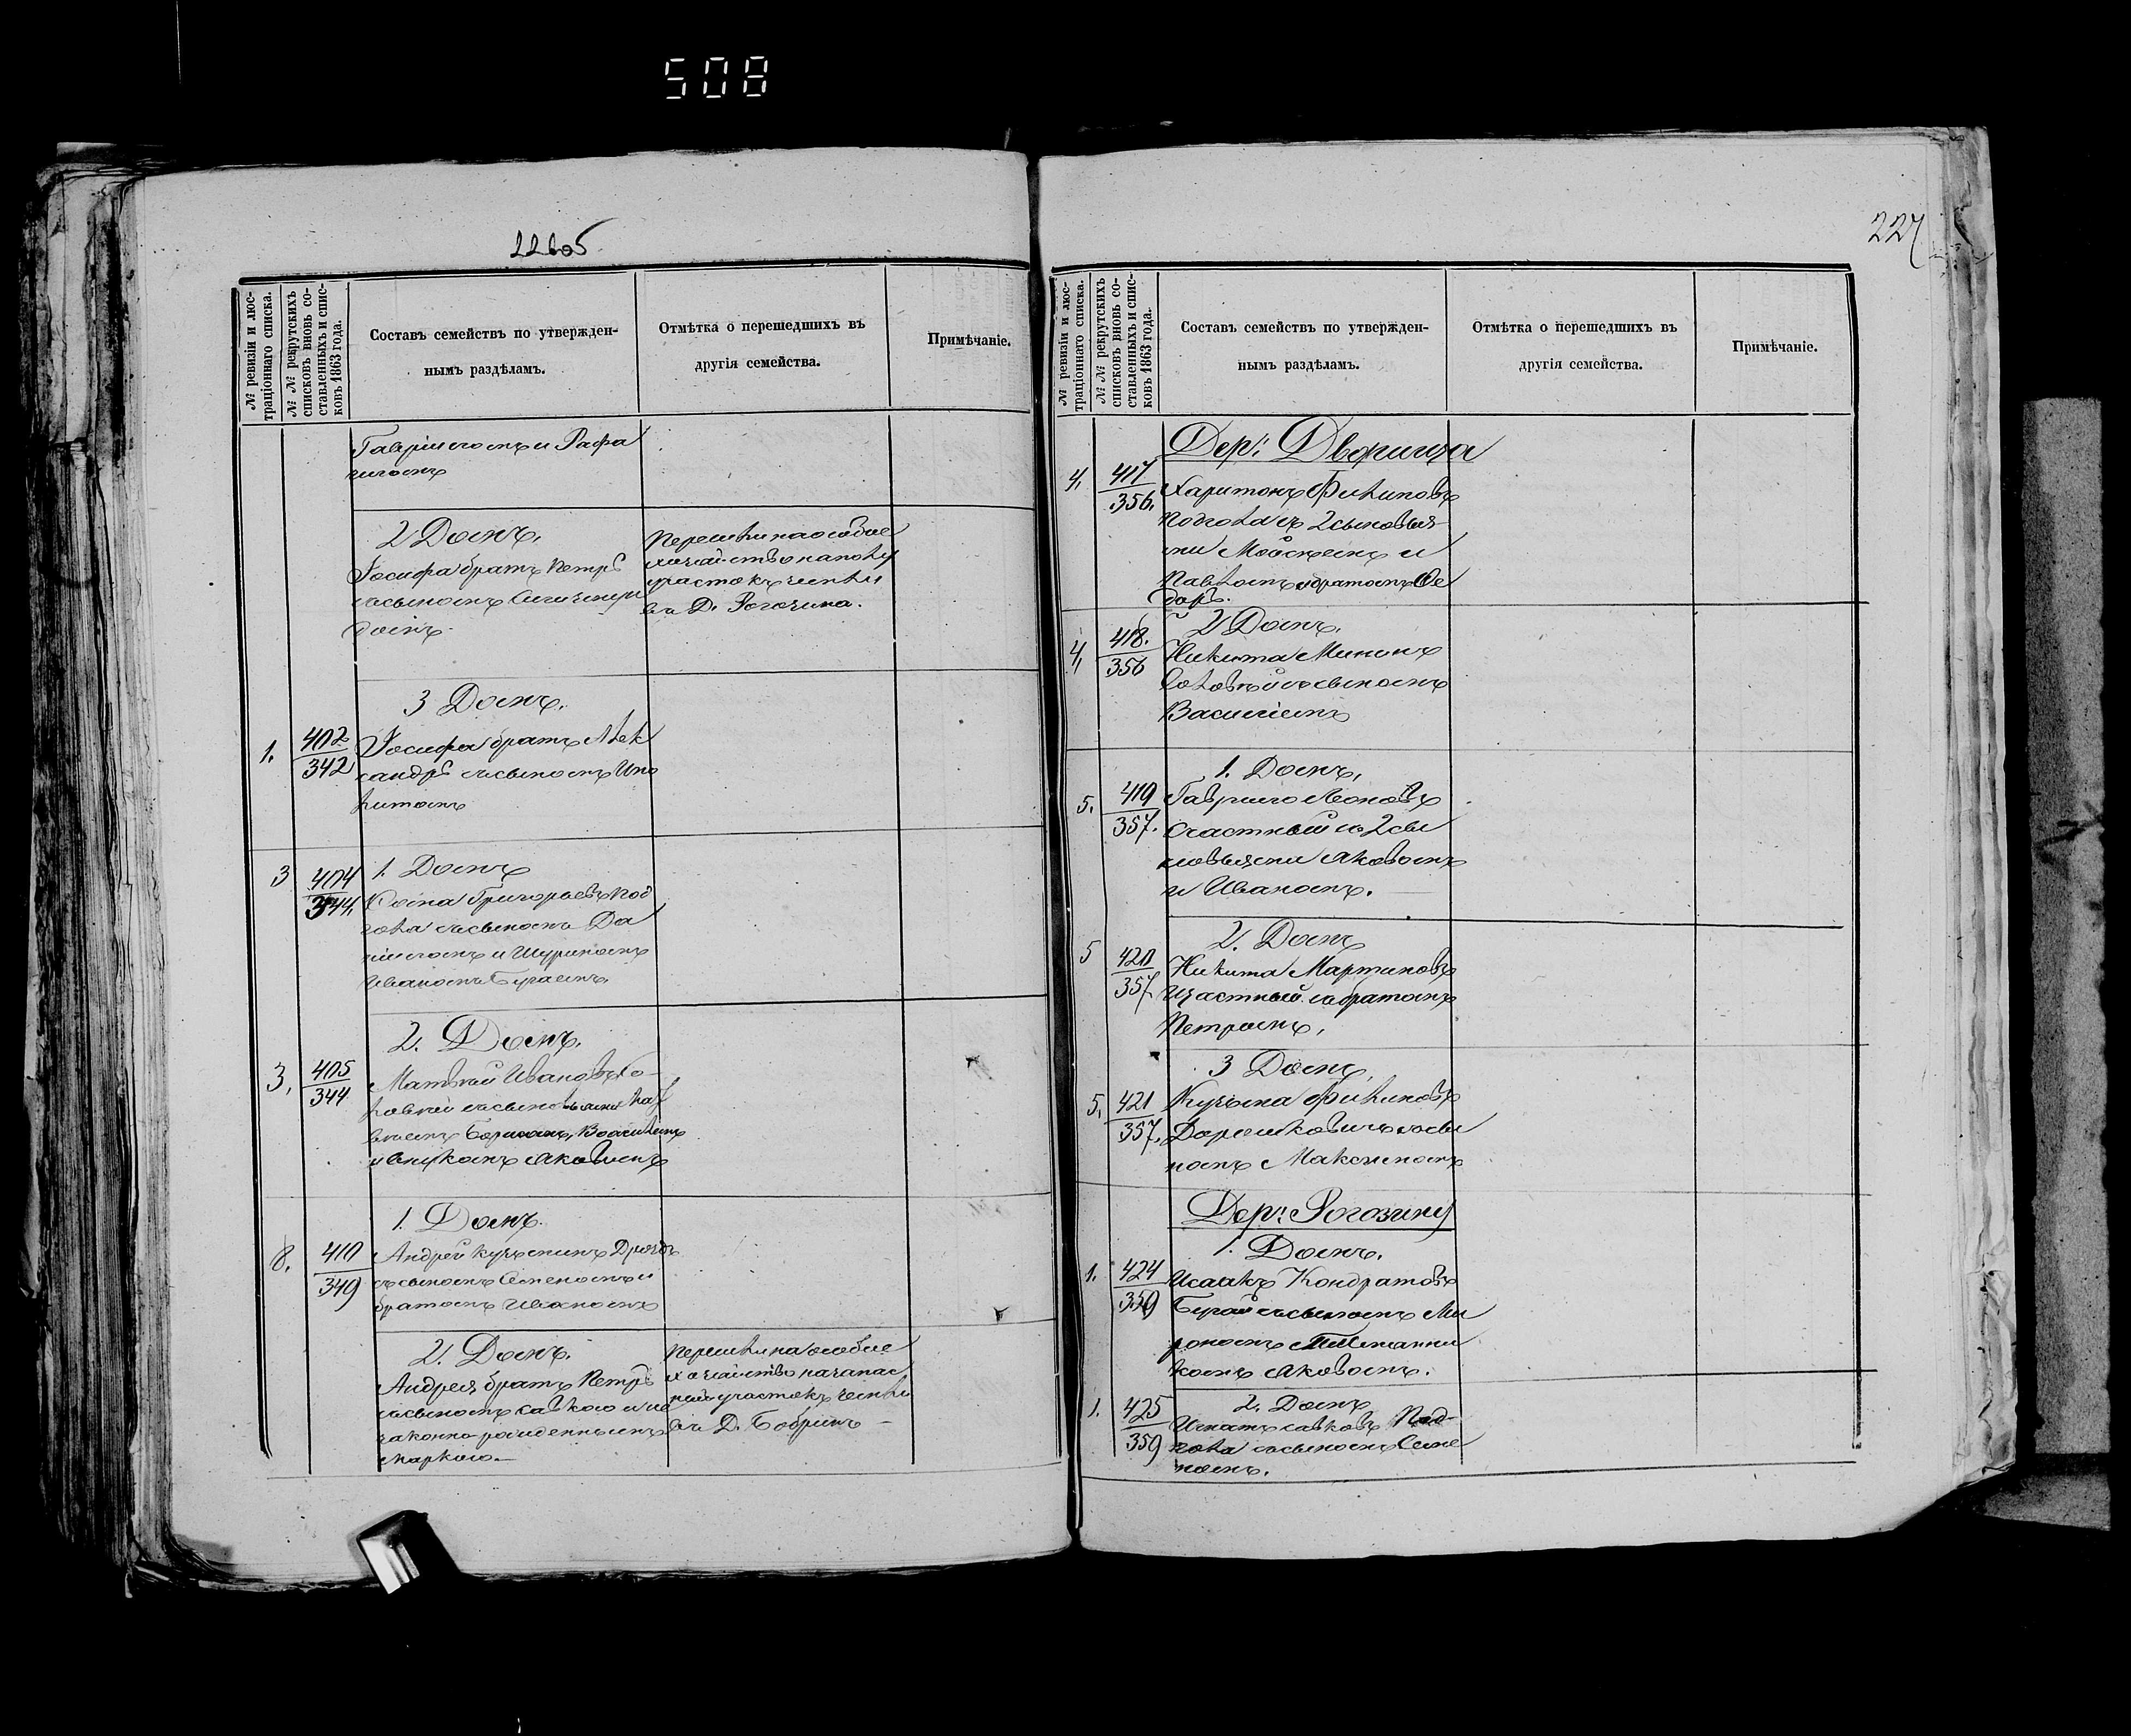 508
226об
№ ревизіи и люс-
траціоннаго списка.
№ № рекрутскихъ
списковъ вновь со-
ставленныхъ и спис-
ковъ 1863 года.
Составъ семействъ по утвержден-
нымъ раздѣламъ.
Отмѣтка о перешедшихъ въ
другія семейства.
Примѣчаніе.
Гавріиломъ и Рафа
иломъ
2 Домъ.
Іосифа братъ Петръ
съ сыномъ
Перешли на особое
хозяйство на полн
участокъ земли
въ Д. Рогозина.
3 Домъ.
1. 402
342
Іосифа братъ Алек
сандръ съ сыномъ Ипо
литомъ
3 404
344.
1. Домъ
Косма Григорьевъ Под
гола съ сыномъ Да
ніиломъ и Шуриномъ
Иваномъ Бугаемъ
2. Домъ.
3, 405
344
Матвѣй Ивановъ Го-
ловнѣй съ сыновьями
Василіемъ
и внукомъ Яковомъ
1. Домъ.
8. 410
349
Андрей Кузьминъ Дроздъ
съ сыномъ Семеномъ и
братомъ Иваномъ
2. Домъ.
Андрея братъ Петръ
съ сыномъ Савкою и не
законно-рожденнымъ
Маркою.
Перешли на особое
хозяйство на запас
ный участокъ земли
въ Д. Бобрикъ
227
№ ревизіи и люс-
траціоннаго списка.
№ № рекрутскихъ
списковъ вновь со-
ставленныхъ и спис-
ковъ 1863 года.
Составъ семействъ по утвержден-
нымъ раздѣламъ.
Отмѣтка о перешедшихъ въ
другія семейства.
Примѣчаніе.
Дер: Дворища
4, 417
356.
Харитонъ Филиповъ
Подгола съ 2 сыновья-
ми Моѵсеемъ и
Павломъ и братомъ Ѳе
доръ.
2 Домъ.
4, 418.
356
Никита Мининъ
съ сыномъ
Василіемъ
1. Домъ,
5. 419
357.
Гаврило Леоновъ
Счастный съ 2 сы
новьями Яковомъ
и Иваномъ.
2. Домъ
5 420
357
Никита Мартиновъ
Щастный съ братомъ
Петромъ,
3 Домъ,
5, 421
357.
Кузьма Филиповъ
Дорошковичъ съ сы
номъ Максимомъ
Дер: Рогозину
1. Домъ.
1. 424
359
Исаакъ Кондратовъ
Бугай съ сыномъ Ми
рономъ и Племянни
комъ Яковомъ.
1. 425
359
2. Домъ
Игнатъ Савковъ Под-
гола съ сыномъ Семе
номъ.